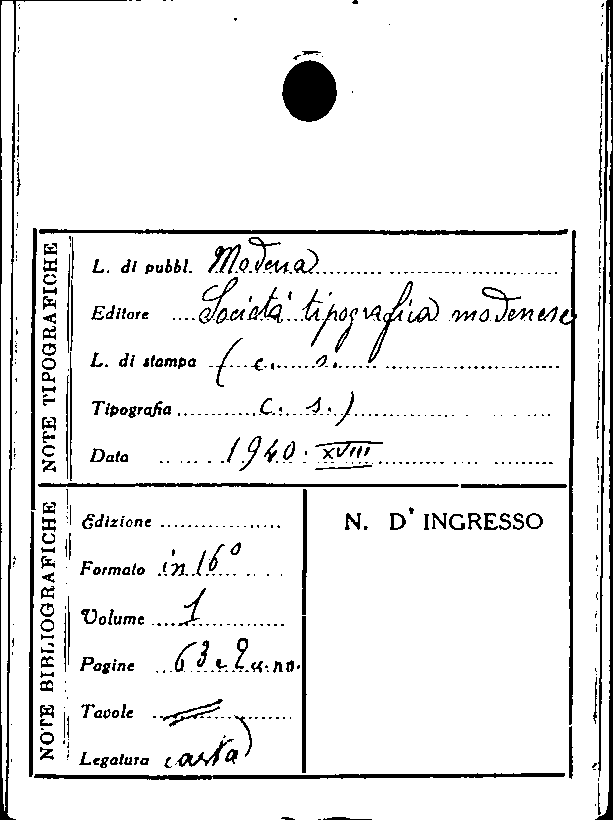 NOTE TIPOGRAFICHE
L. di pubbl. Modena
Editore Società tipografica modenese
L. di stampa ( c. s.
Tipografia c. s. )
Data 1940. XVIII
NOTE BIBLIOGRAFICHE
Edizione
Formato in 16°
Volume 1
Pagine 63 e 2 u. no.
Tavole
Legatura carta
N. D' INGRESSO